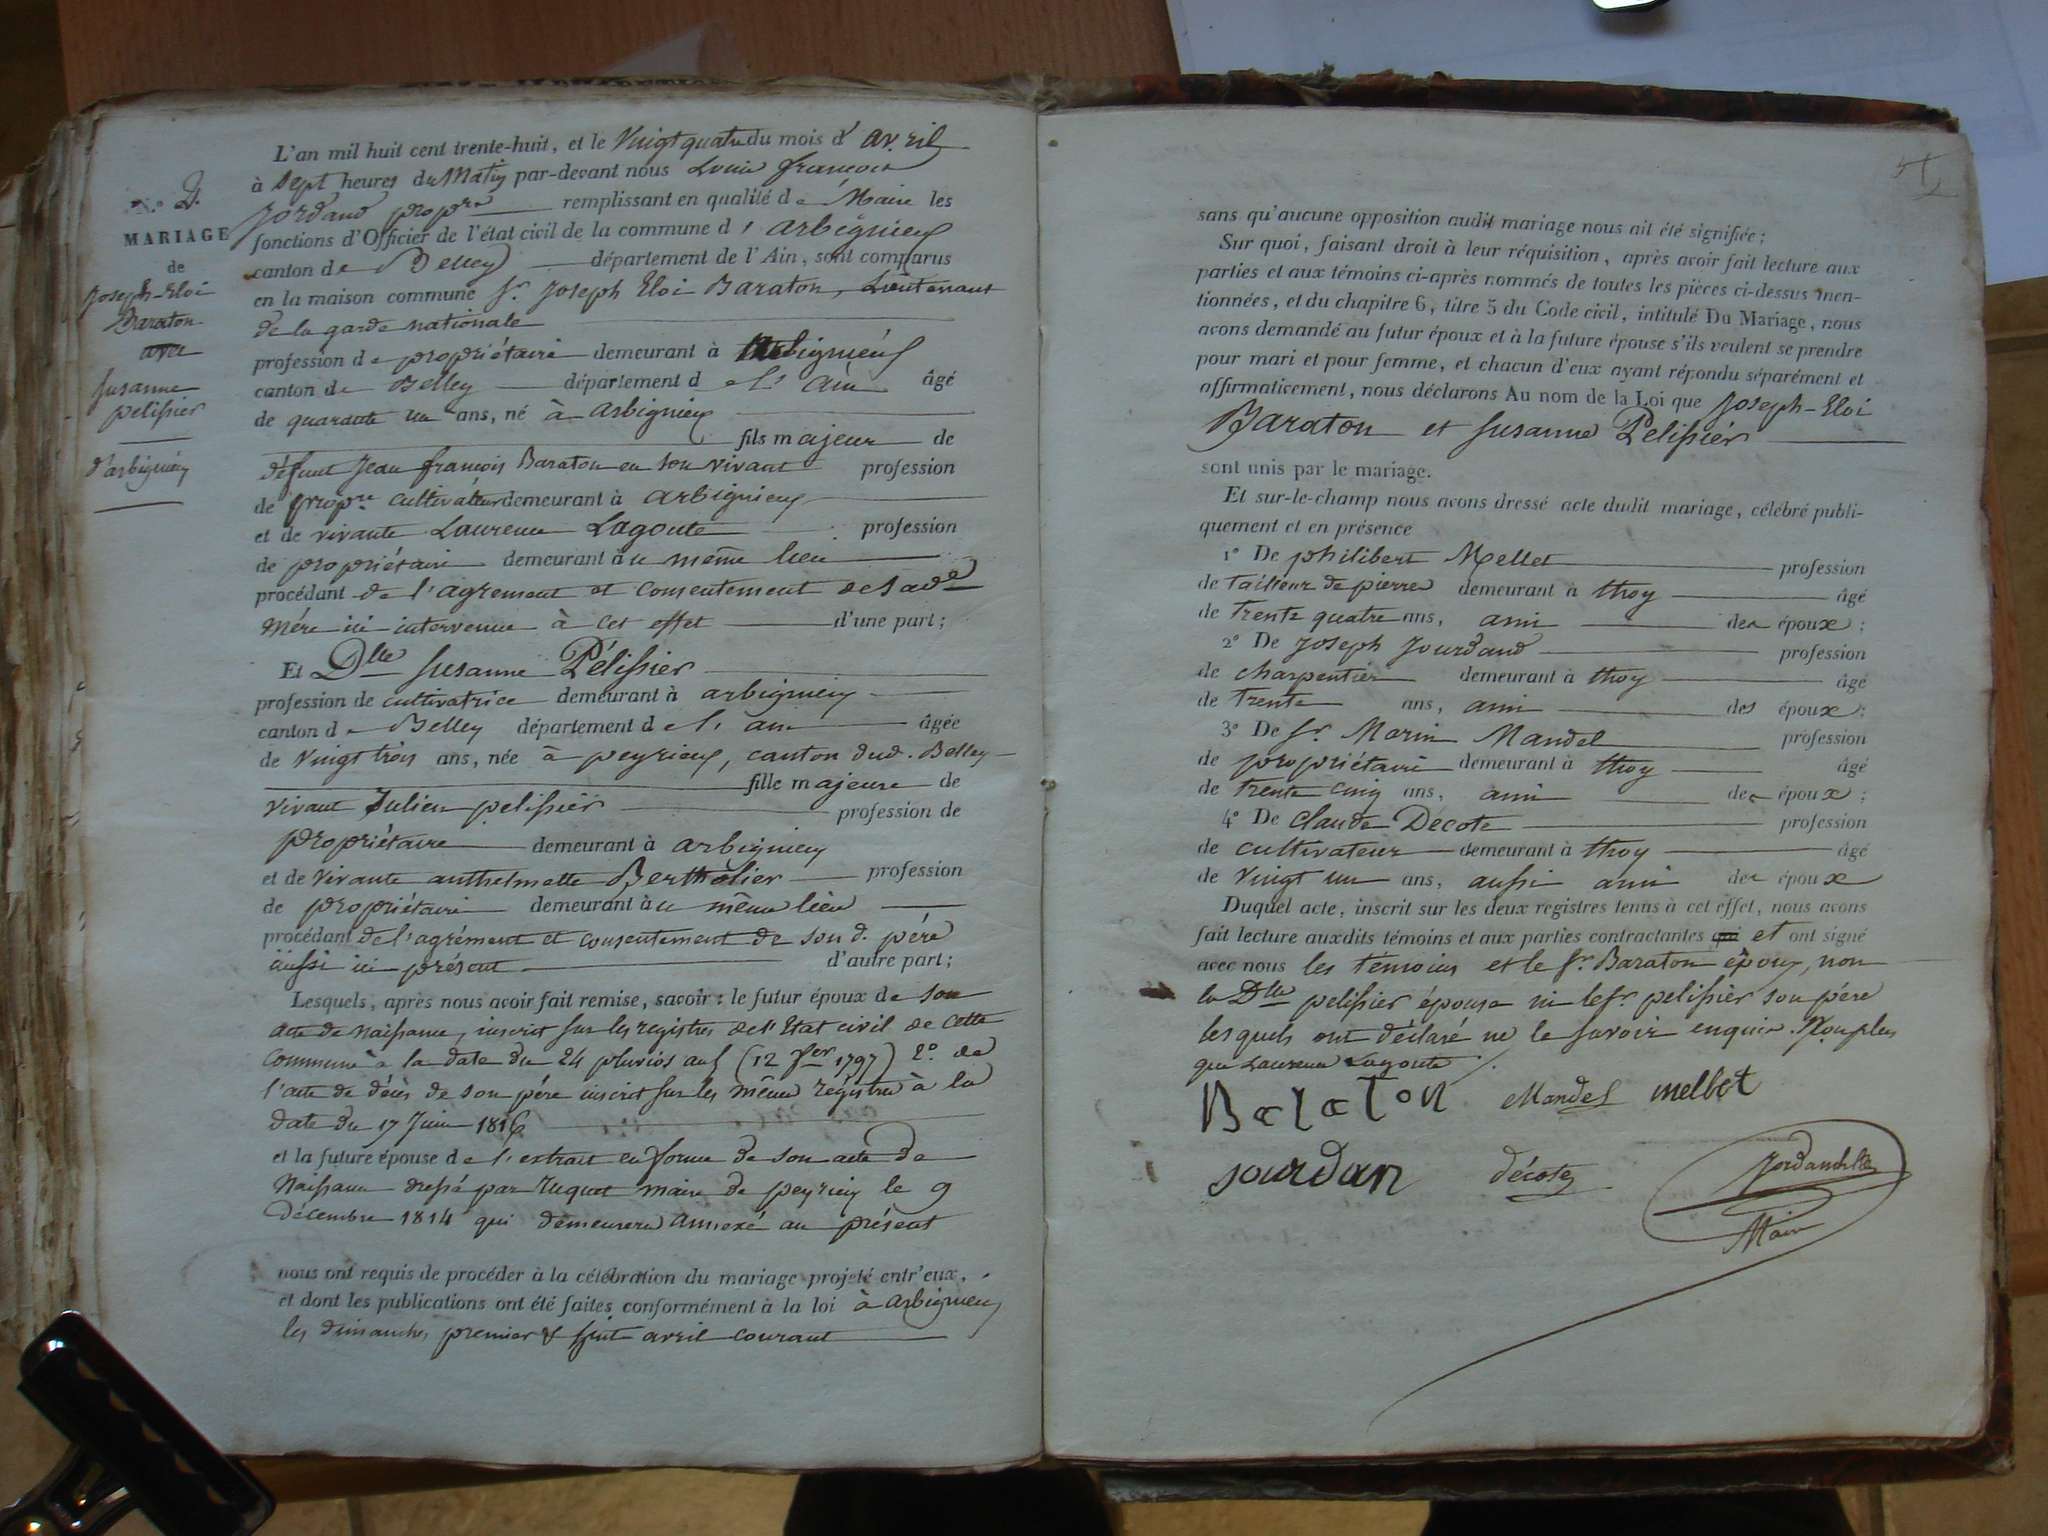 N.o 2.
MARIAGE
de
Joseph-Eloi
Baraton
avec
Susanne
pelissier
d'arbignieu
L'an mil huit cent trente-huit, et le Vingt quatre du mois d' avril
à sept heures du Matin par-devant nous Louis françois
Jordand propre remplissant en qualité de Maire les
fonctions d'Officier de l'état civil de la commune d'arbignieu
canton de Belley département de l'Ain, sont comparus
en la maison commune Sr. Joseph Eloi Baraton, Lieutenant
de la garde nationale
profession de propriétaire demeurant à arbignieu
canton de Belley département de l'ain âgé
de quarante un ans, né à arbignieu
fils majeur de
défunt Jean françois Baraton en son vivant profession
de propre cultivateur demeurant à arbignieu
et de vivante Laurence Lagoute profession
de propriétaire demeurant au même lieu
procédant de l'agrement et consentement de sade
mére ici intervenue à cet effet d'une part;
Et Dlle Susanne Pélissier
profession de cultivatrice demeurant à arbignieu
canton de Belley département de l'ain âgée
de Vingt trois ans, née à peyrieu, canton dud. Belley
fille majeure de
vivant Julien pelissier profession de
propriétaire demeurant à arbignieu
et de vivante anthelmette Berthelier profession
de propriétaire demeurant au même lieu
procédant de l'agrément et consentement de son d. pére
aussi ici présent d'autre part;
Lesquels, après nous avoir fait remise, savoir: le futur époux de son
acte de naissance, inscrit sur les registres de l'Etat civil de cette
commune à la date du 24 pluvios an 5 (12 fer 1797) 2o. de
l'acte de décès de son pére inscrit sur les même registre à la
date du 17 Juin 1816
et la future épouse de l'extrait en forme de son acte de
Naissance dressé par maire de peyrieu le 9
décembre 1814 qui demeurera annexé au présent
nous ont requis de procéder à la célébration du mariage projeté entr'eux,
et dont les publications ont été faites conformément à la loi à arbignieu
les dimanches premier & huit avril courant
sans qu'aucune opposition audit mariage nous ait été signifiée;
Sur quoi, faisant droit à leur réquisition, après avoir fait lecture aux
parties et aux témoins ci-après nommés de toutes les pièces ci-dessus men-
tionnées, et du chapitre 6, titre 5 du Code civil, intitulé Du Mariage, nous
avons demandé au futur époux et à la future épouse s'ils veulent se prendre
pour mari et pour femme, et chacun d'eux ayant répondu séparément et
affirmativement, nous déclarons Au nom de la Loi que Joseph-Eloi
Baraton et Susanne Pelissier
sont unis par le mariage.
Et sur-le-champ nous avons dressé acte dudit mariage, célébré publi-
quement et en présence
1o De philibert Mellet profession
de tailleur de pierres demeurant à thoy âgé
de trente quatre ans, ami des époux;
2o De Joseph Jourdand profession
de charpentier demeurant à thoy âgé
de trente ans, ami des époux;
3o De Sr. Morin Mandel profession
de propriétaire demeurant à thoy âgé
de trente cinq ans, ami des époux;
4o De Claude Decote profession
de cultivateur demeurant à thoy âgé
de vingt un ans, aussi ami des époux
Duquel acte, inscrit sur les deux registres tenus à cet effet, nous avons
fait lecture auxdits témoins et aux parties contractantes qui et ont signé
avec nous les témoins et le Sr. Baraton époux, non
la Dlle pelissier épouse ni le sr. pelissier son pére
lesquels ont déclaré ne le savoir enquis. Non plus
que Laurence Lagoute
Baraton Mandel melbet
jourdan décote Jordand
Maire